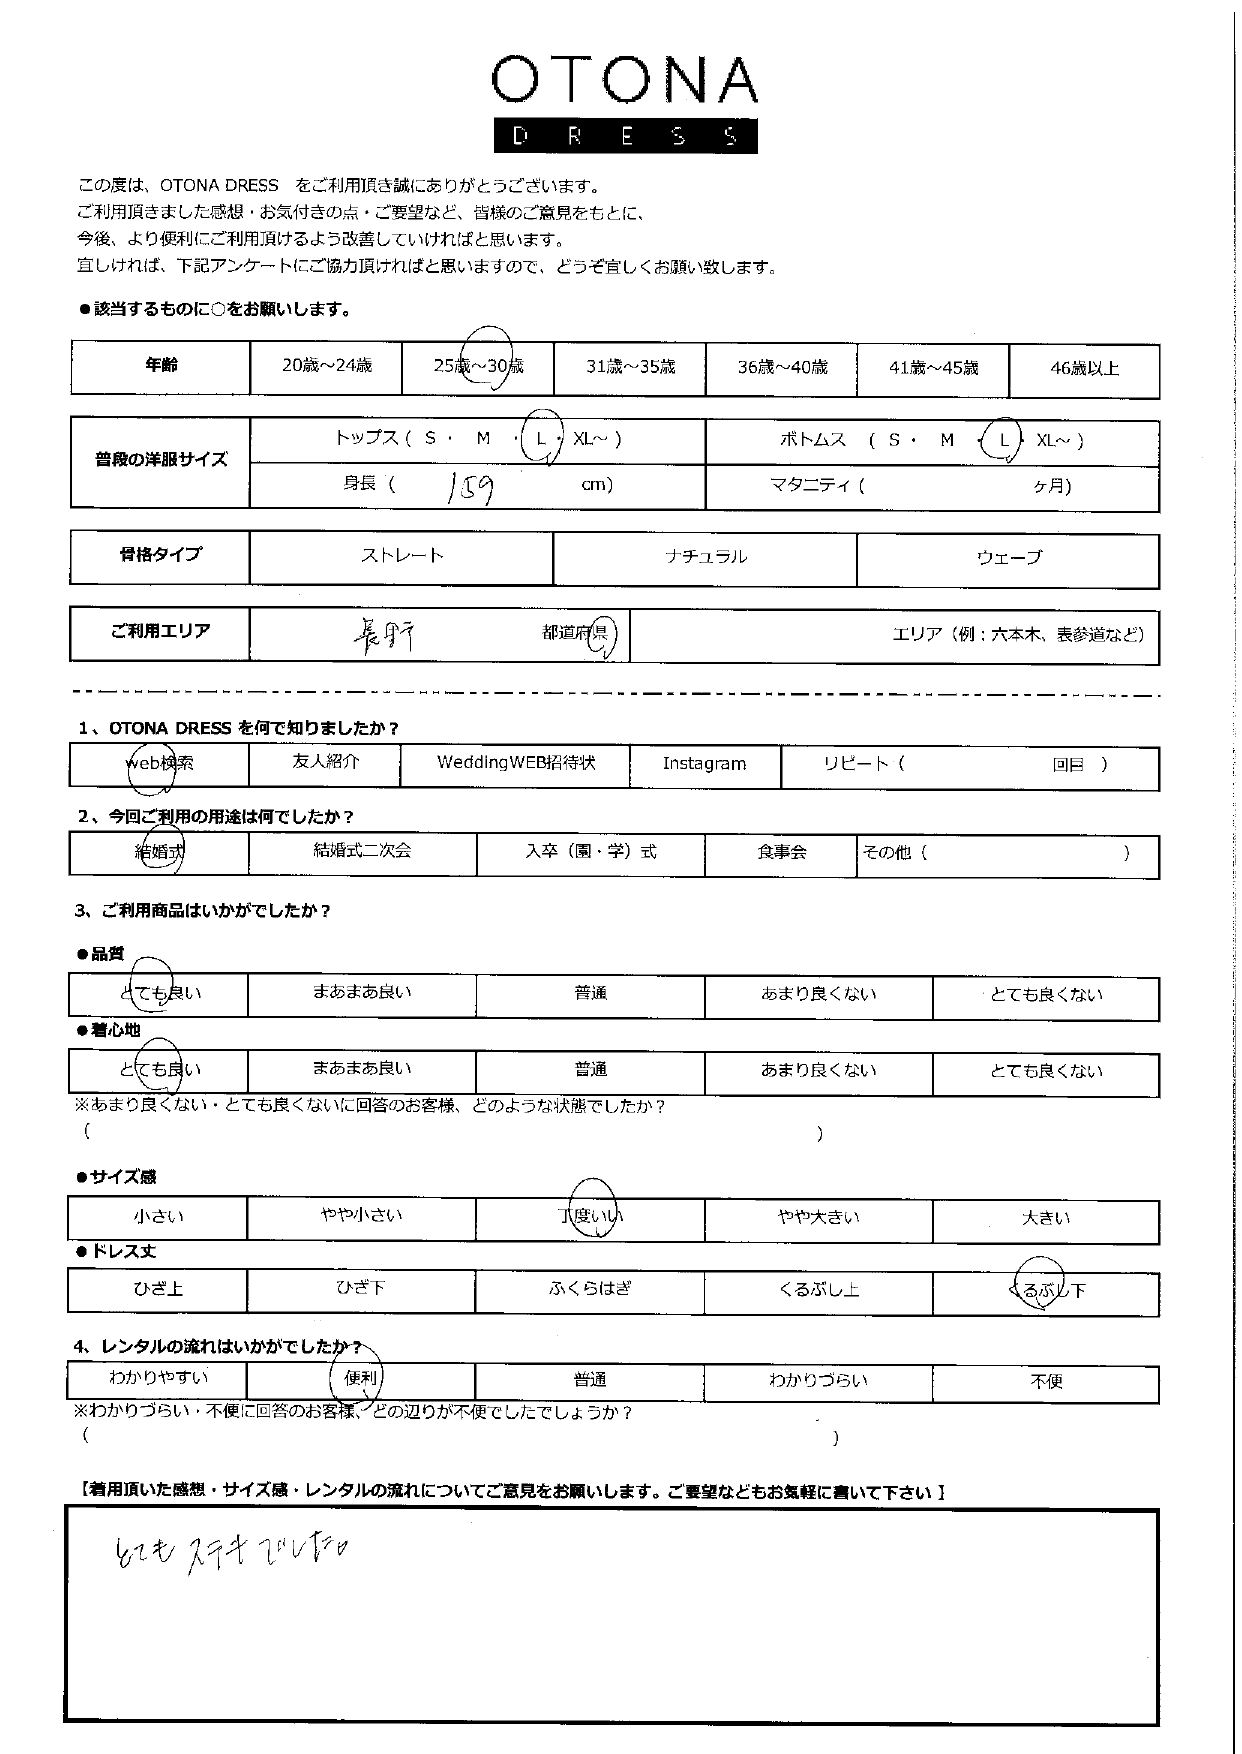 OTONA
DRESS
この度は、OTONA DRESS　をご利用頂き誠にありがとうございます。
ご利用頂きました感想・お気付きの点・ご要望など、皆様のご意見をもとに、
今後、より便利にご利用頂けるよう改善していければと思います。
宜しければ、下記アンケートにご協力頂ければと思いますので、どうぞ宜しくお願い致します。
●該当するものに○をお願いします。
年齢 20歳～24歳 25歳～30歳 31歳～35歳 36歳～40歳 41歳～45歳 46歳以上
普段の洋服サイズ トップス（ S ・ M ・ L ・ XL～ ） ボトムス （ S ・ M ・ L ・ XL～ ）
身長（ 159 cm） マタニティ（ ヶ月）
骨格タイプ ストレート ナチュラル ウェーブ
ご利用エリア 長野 都道府県 エリア（例：六本木、表参道など）
1、OTONA DRESS を何で知りましたか？
web検索 友人紹介 WeddingWEB招待状 Instagram リピート（ 回目 ）
2、今回ご利用の用途は何でしたか？
結婚式 結婚式二次会 入卒（園・学）式 食事会 その他（ ）
3、ご利用商品はいかがでしたか？
●品質
とても良い まあまあ良い 普通 あまり良くない とても良くない
●着心地
とても良い まあまあ良い 普通 あまり良くない とても良くない
※あまり良くない・とても良くないに回答のお客様、どのような状態でしたか？
（ ）
●サイズ感
小さい やや小さい 丁度いい やや大きい 大きい
●ドレス丈
ひざ上 ひざ下 ふくらはぎ くるぶし上 くるぶし下
4、レンタルの流れはいかがでしたか？
わかりやすい 便利 普通 わかりづらい 不便
※わかりづらい・不便に回答のお客様、どの辺りが不便でしたでしょうか？
（ ）
【着用頂いた感想・サイズ感・レンタルの流れについてご意見をお願いします。ご要望などもお気軽に書いて下さい】
とてもステキでした。